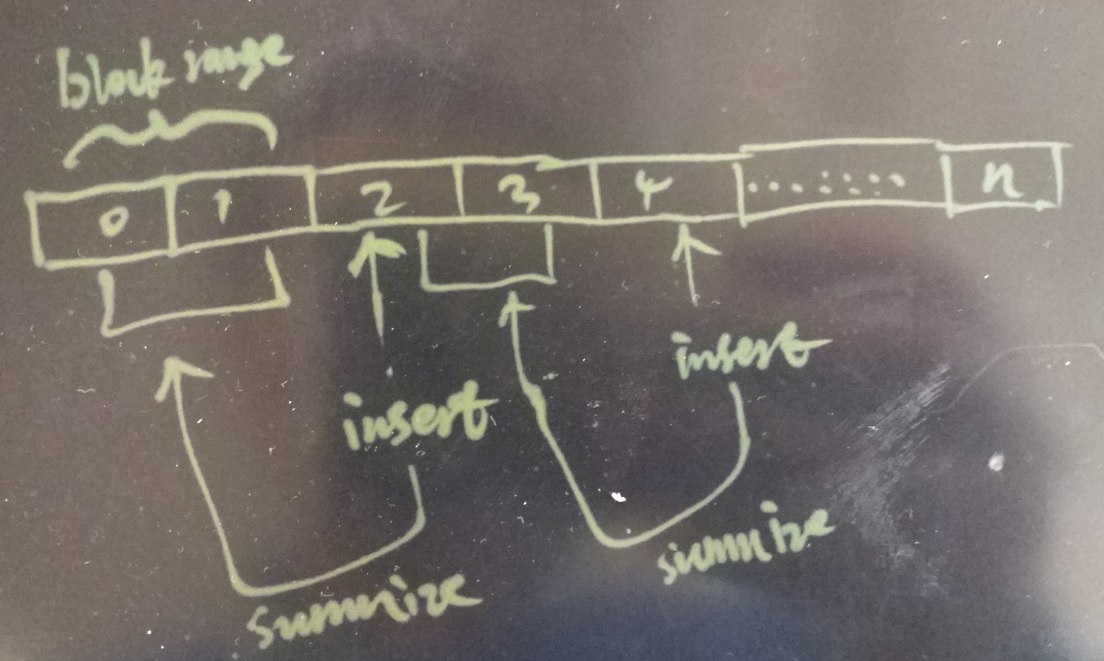 block range
0 1 2 3 4 ....... n
insert
insert
summize
summize